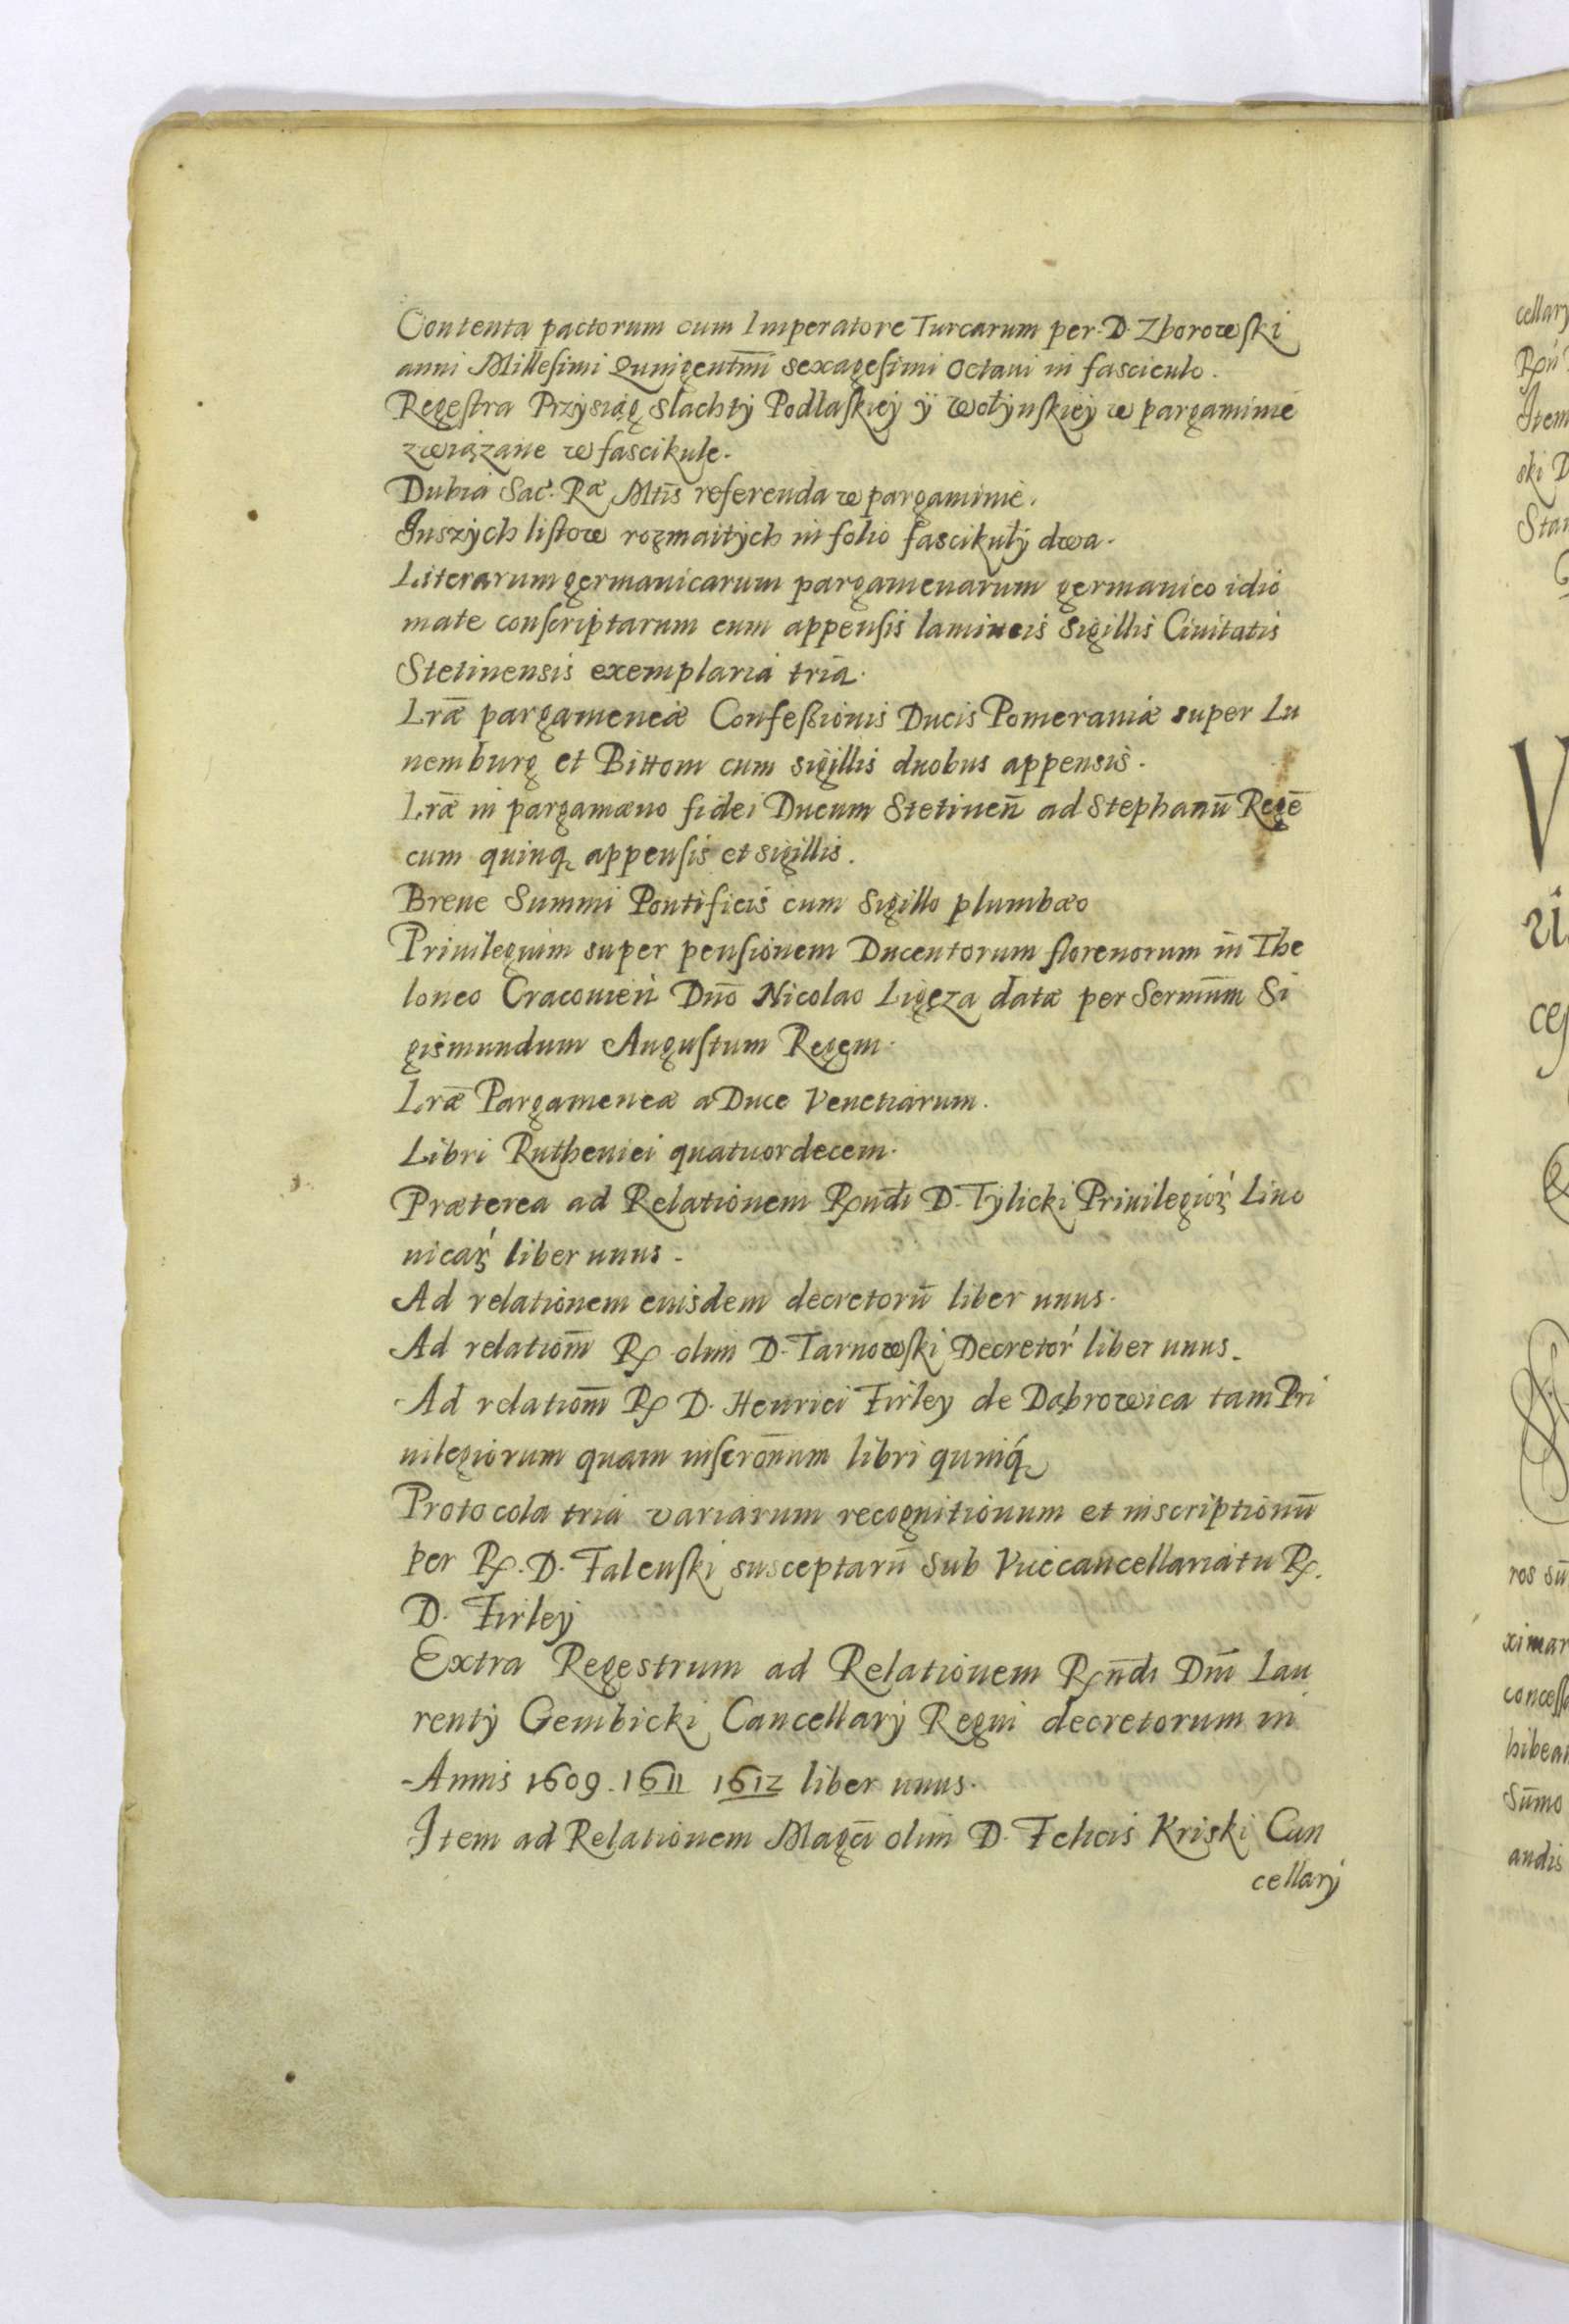 Contenta pactorum cum Imperatore Turcarum per D. Zborowſki
anni Milleſimi Quingent̅mi sexageſimi Octaui in fasciculo.
Regeſtra Przysiąg slachtÿ Podlaſkieÿ ÿ Wołÿnſkieÿ w pargaminie
związane w fascikule.
Dubia Sac. Ræ Mtis̅ referenda w pargaminie.
Inszÿch liſtow rozmaitÿch in folio fascikułÿ dwa.
Literarum germanicarum pargamenarum germanico idio
mate conſcriptarum cum appenſis lamineis Sigillis Ciuitatis
Stetinensis exemplaria tria.
Lræ̅ pargameneæ Confeßionis Ducis Pomeraniæ super Lu
nemburg et Bittom cum sigillis duobus appensis.
Lræ̅ in pargamæno fidei Ducum Stetinen̅ ad Stephanu̅ Rege̅
cum quinq₃ appenſis et sigillis.
Breue Summi Pontificis cum Sigillo plumbæo
Priuilegium super penſionem Ducentorum florenorum in The
loneo Cracouien̅ Dno̅ Nicolao Ligęza datæ per Sermu̅m Si
gismundum Auguſtum Regem.
Lræ̅ Pargameneæ a Duce Venetiarum.
Libri Ruthenici quatuordecem.
Præterea ad Relationem Rn̅di D. Tÿlicki Priuilegioꝝ Liuo
nicaꝝ liber unus.
Ad relationem eiusdem decretoru̅ liber unus.
Ad relatiom̅ R. olim D. Tarnowſki Decretor̕ liber unus.
Ad relatiom̅ R. D. Henrici Firley de Dąbrowica tam Pri
uilegiorum quam inſcron̅um libri quinq₃
Protocola tria variarum recognitionum et inscriptionu̅
per R. D. Falenſki susceptaru̅ sub Vicecancellariatu R.
D. Firleÿ
Extra Regestrum ad Relationem Rn̅di Dn̅i Lau
rentÿ Gembicki Cancellarÿ Regni decretorum in
Annis 1609. 1611 1612 liber unus.
Item ad Relationem Magci̅ olim D. Felicis Kriski Can
cellarÿ